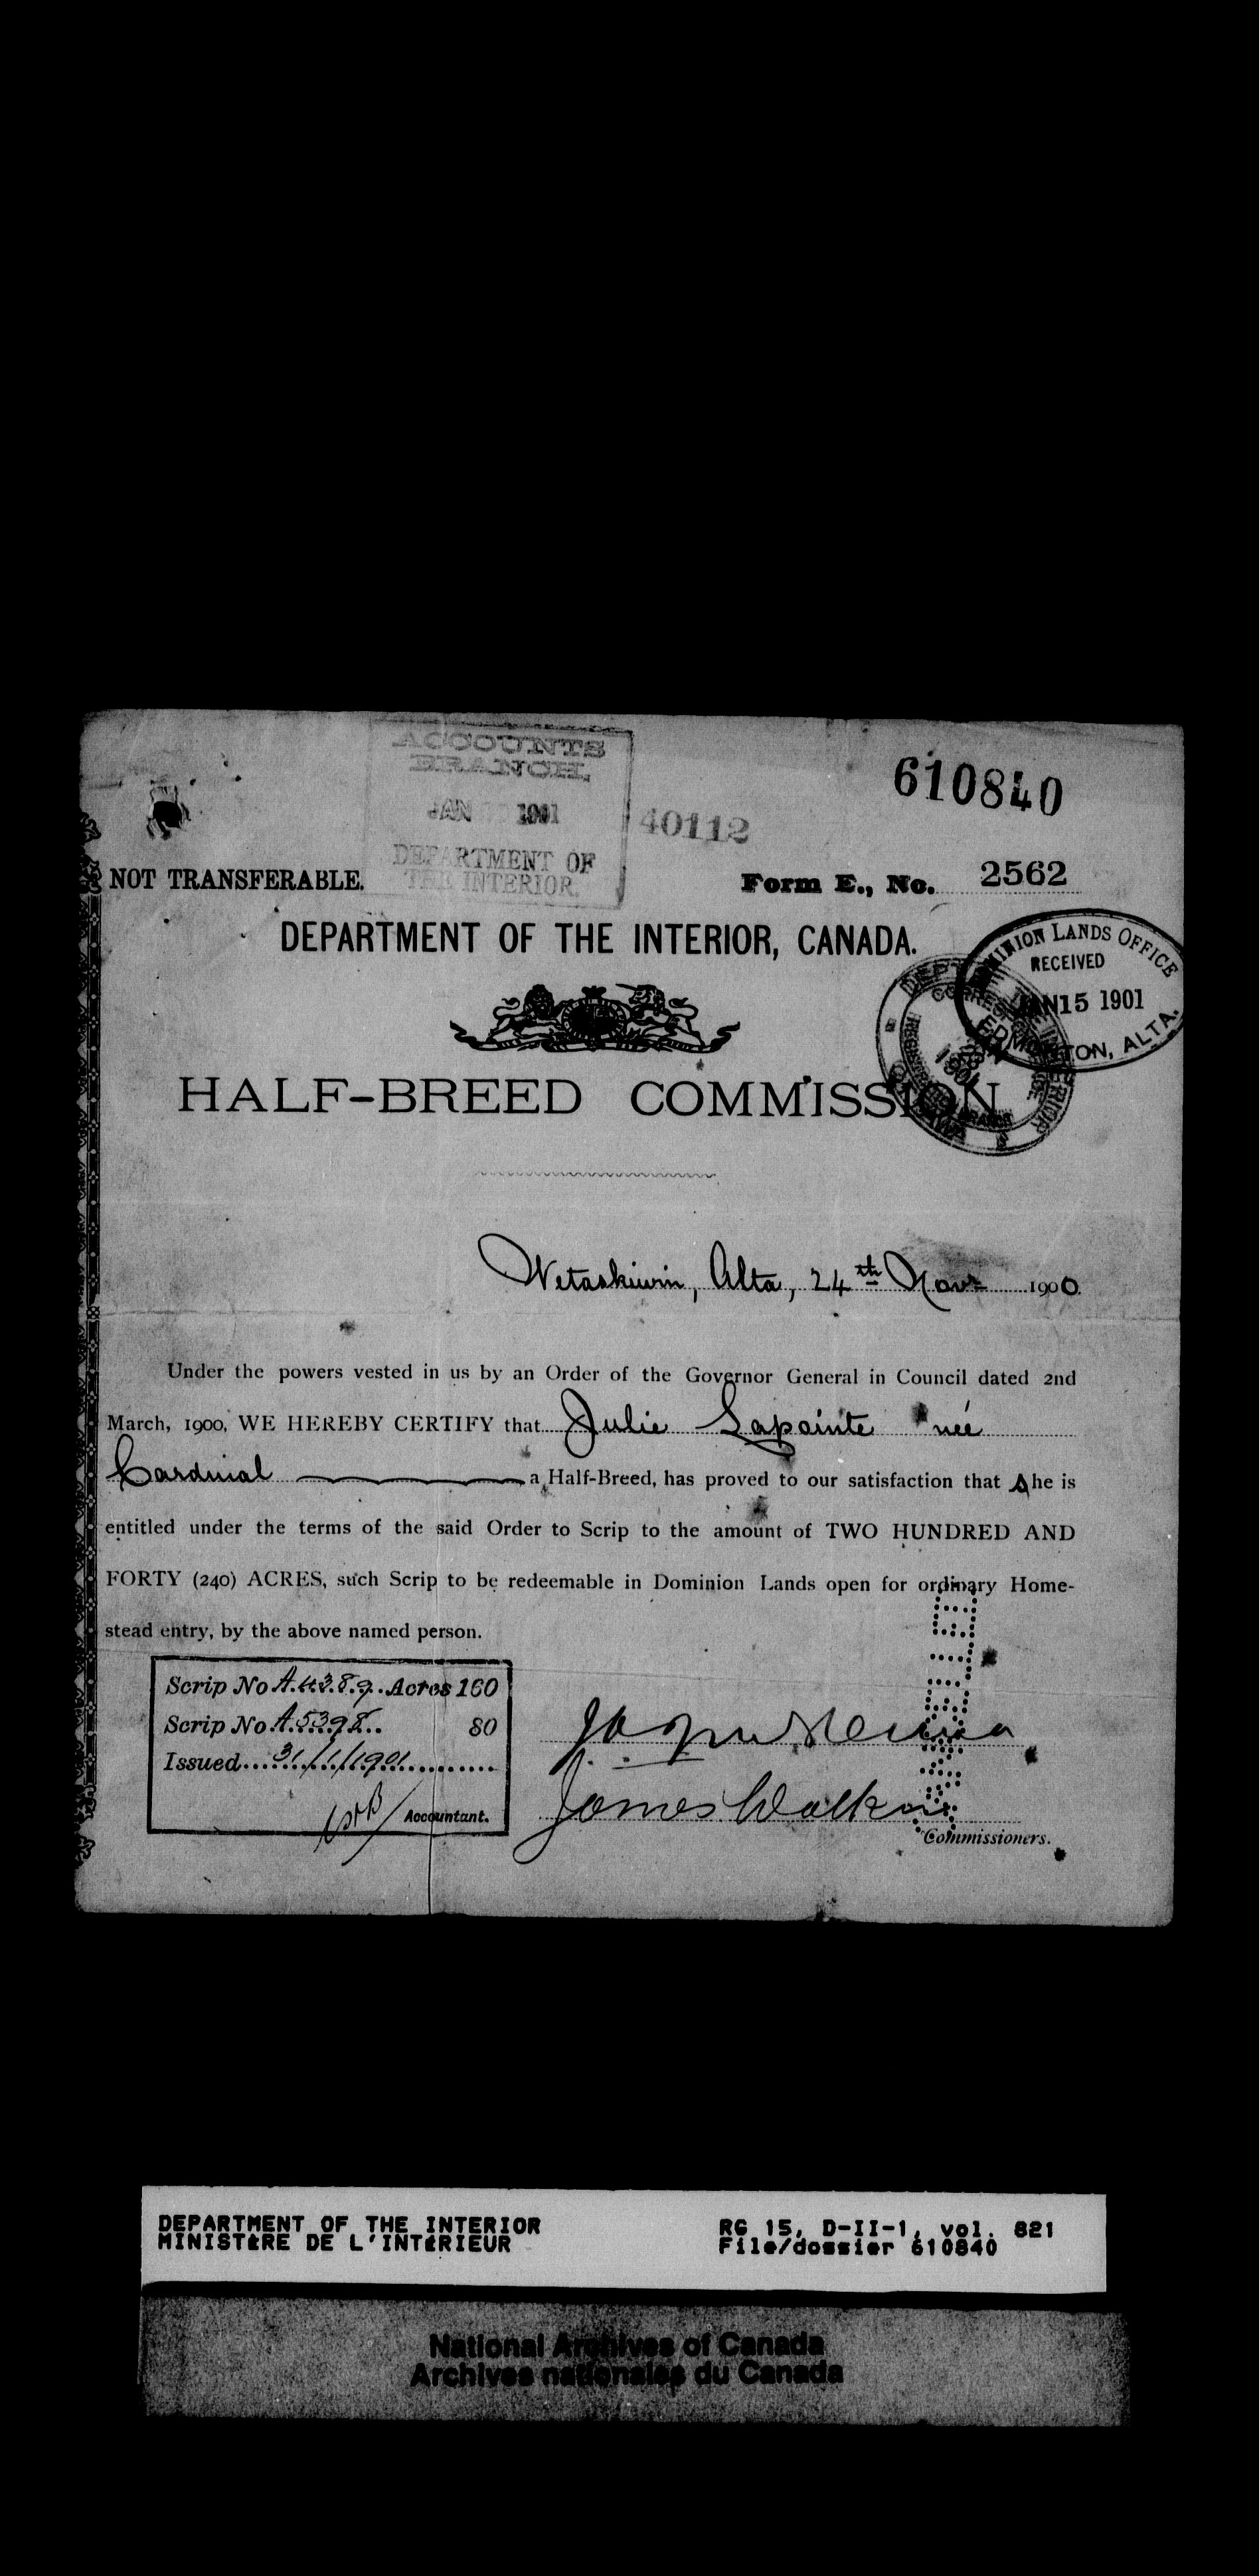 ACCOUNTS
BRANCH,
JAN 1901
DEPARTMENT OF
THE INTERIOR.
40112
610840
NOT TRANSFERABLE.
Form E., No. 2562
DEPARTMENT OF THE INTERIOR, CANADA.
DOMINION LANDS OFFICE
RECEIVED
JAN 15 1901
EDMONTON, ALTA.
HALF-BREED COMMISSION
Wetaskiwin, Alta, 24th Novr 1900.
Under the powers vested in us by an Order of the Governor General in Council dated 2nd
March, 1900, WE HEREBY CERTIFY that Julie Lapointe née
Cardinal a Half-Breed, has proved to our satisfaction that She is
entitled under the terms of the said Order to Scrip to the amount of TWO HUNDRED AND
FORTY (240) ACRES, such Scrip to be redeemable in Dominion Lands open for ordinary Home-
stead entry, by the above named person.
Scrip No A.4389 Acres 160
Scrip No A.5398 80
Issued 31/1/1901
Accountant.
James Walker
Commissioners.
DEPARTMENT OF THE INTERIOR
MINISTÈRE DE L'INTÉRIEUR
RG 15, D-II-1, vol. 821
File/dossier 610840
National Archives of Canada
Archives nationales du Canada